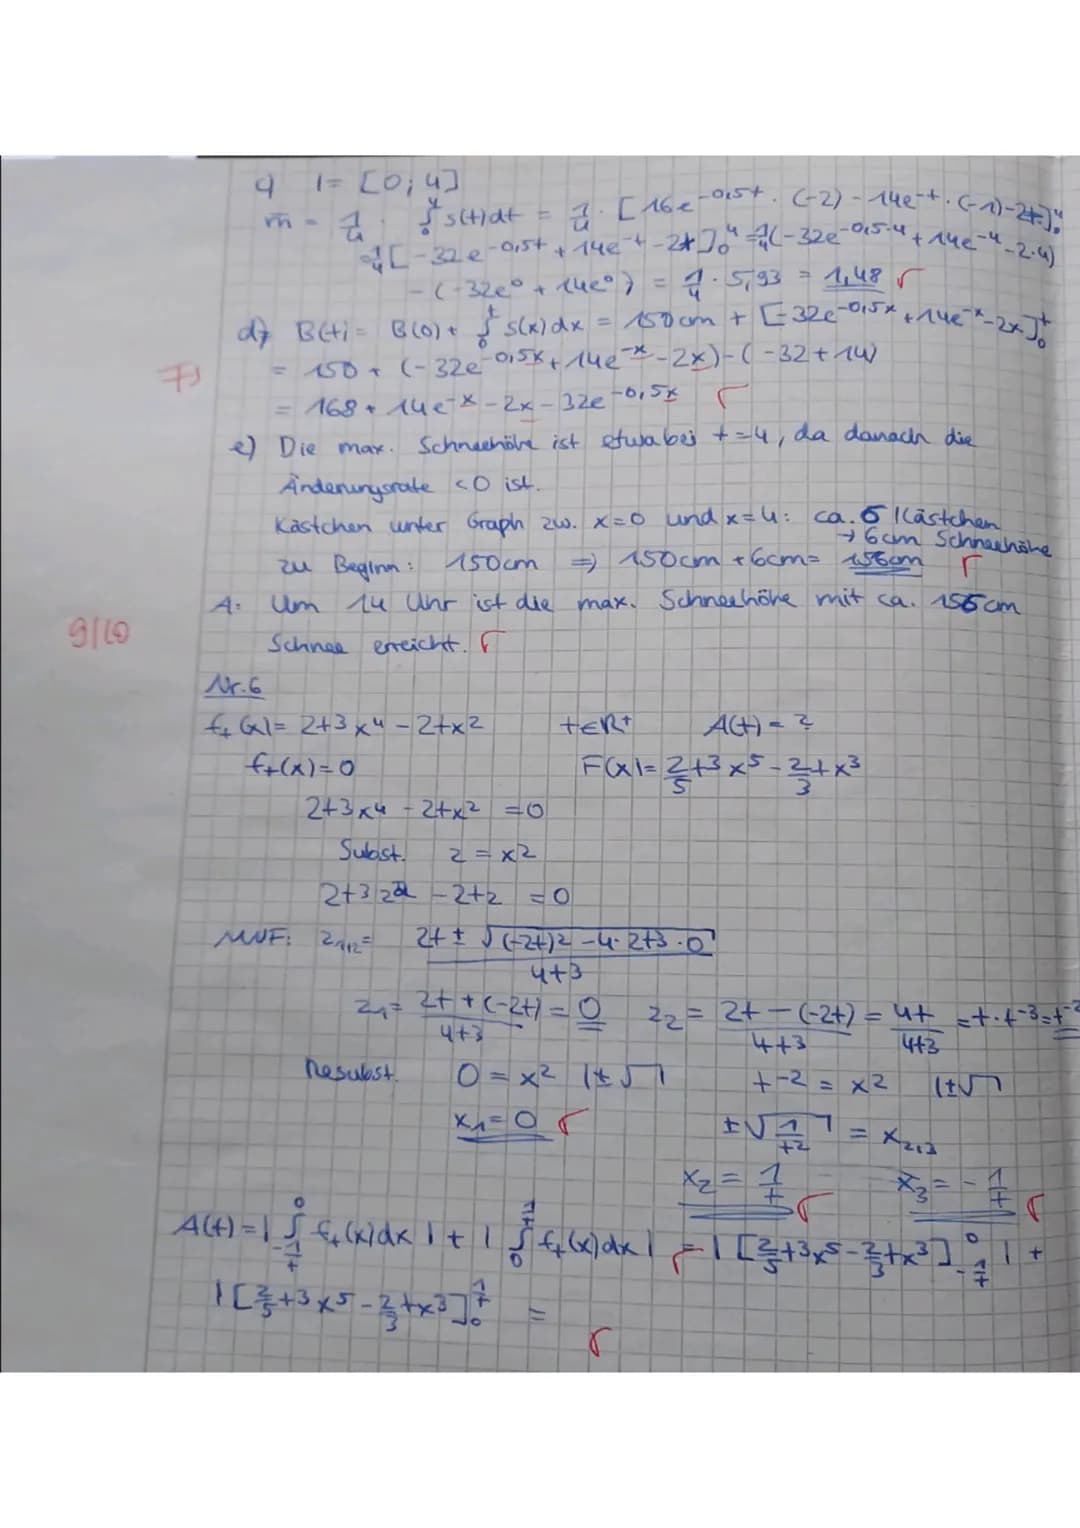 c) I = [0; 4]
m̄ = 1/4 · ∫₀⁴ s(t)dt = 1/4 · [16e^-0,5t · (-2) - 14e^-t · (-1) - 2t]₀⁴
= 1/4 [-32e^-0,5t + 14e^-t - 2t]₀⁴ = 1/4 (-32e^-0,5·4 + 14e^-4 - 2·4)
- (-32e⁰ + 14e⁰) = 1/4 · 5,93 = 1,48
d) B(t) = B(0) + ∫₀ᵗ s(x)dx = 150cm + [-32e^-0,5x + 14e^-x - 2x]₀ᵗ
= 150 + (-32e^-0,5x + 14e^-x - 2x) - (-32 + 14)
= 168 + 14e^-x - 2x - 32e^-0,5x
e) Die max. Schneehöhe ist etwa bei t = 4, da danach die
Änderungsrate < 0 ist.
Kästchen unter Graph zw. x=0 und x=4: ca. 6 Kästchen
→ 6cm Schneehöhe
zu Beginn: 150cm ⇒ 150cm + 6cm = 156cm
A: Um 14 Uhr ist die max. Schneehöhe mit ca. 156cm
9/10
Schnee erreicht.
Nr. 6
fₜ(x) = 2t³x⁴ - 2tx² t∈R⁺ A(t) = ?
fₜ(x) = 0 F(x) = 2/5 t³x⁵ - 2/3 tx³
2t³x⁴ - 2tx² = 0
Subst. z = x²
2t³z² - 2tz = 0
MNF: z₁,₂ = (2t ± √((-2t)² - 4·2t³·0)) / 4t³
z₁ = (2t + (-2t)) / 4t³ = 0 z₂ = (2t - (-2t)) / 4t³ = 4t / 4t³ = t · t⁻³ = t⁻²
Resubst. 0 = x² |±√ t⁻² = x² |±√
x₁ = 0 ±√(1/t²) = x₂,₃
x₂ = 1/t x₃ = -1/t
A(t) = |∫₋₁/ₜ⁰ fₜ(x)dx| + |∫₀^1/t fₜ(x)dx| = |[2/5 t³x⁵ - 2/3 tx³]₋₁/ₜ⁰| +
|[2/5 t³x⁵ - 2/3 tx³]₀^1/t =